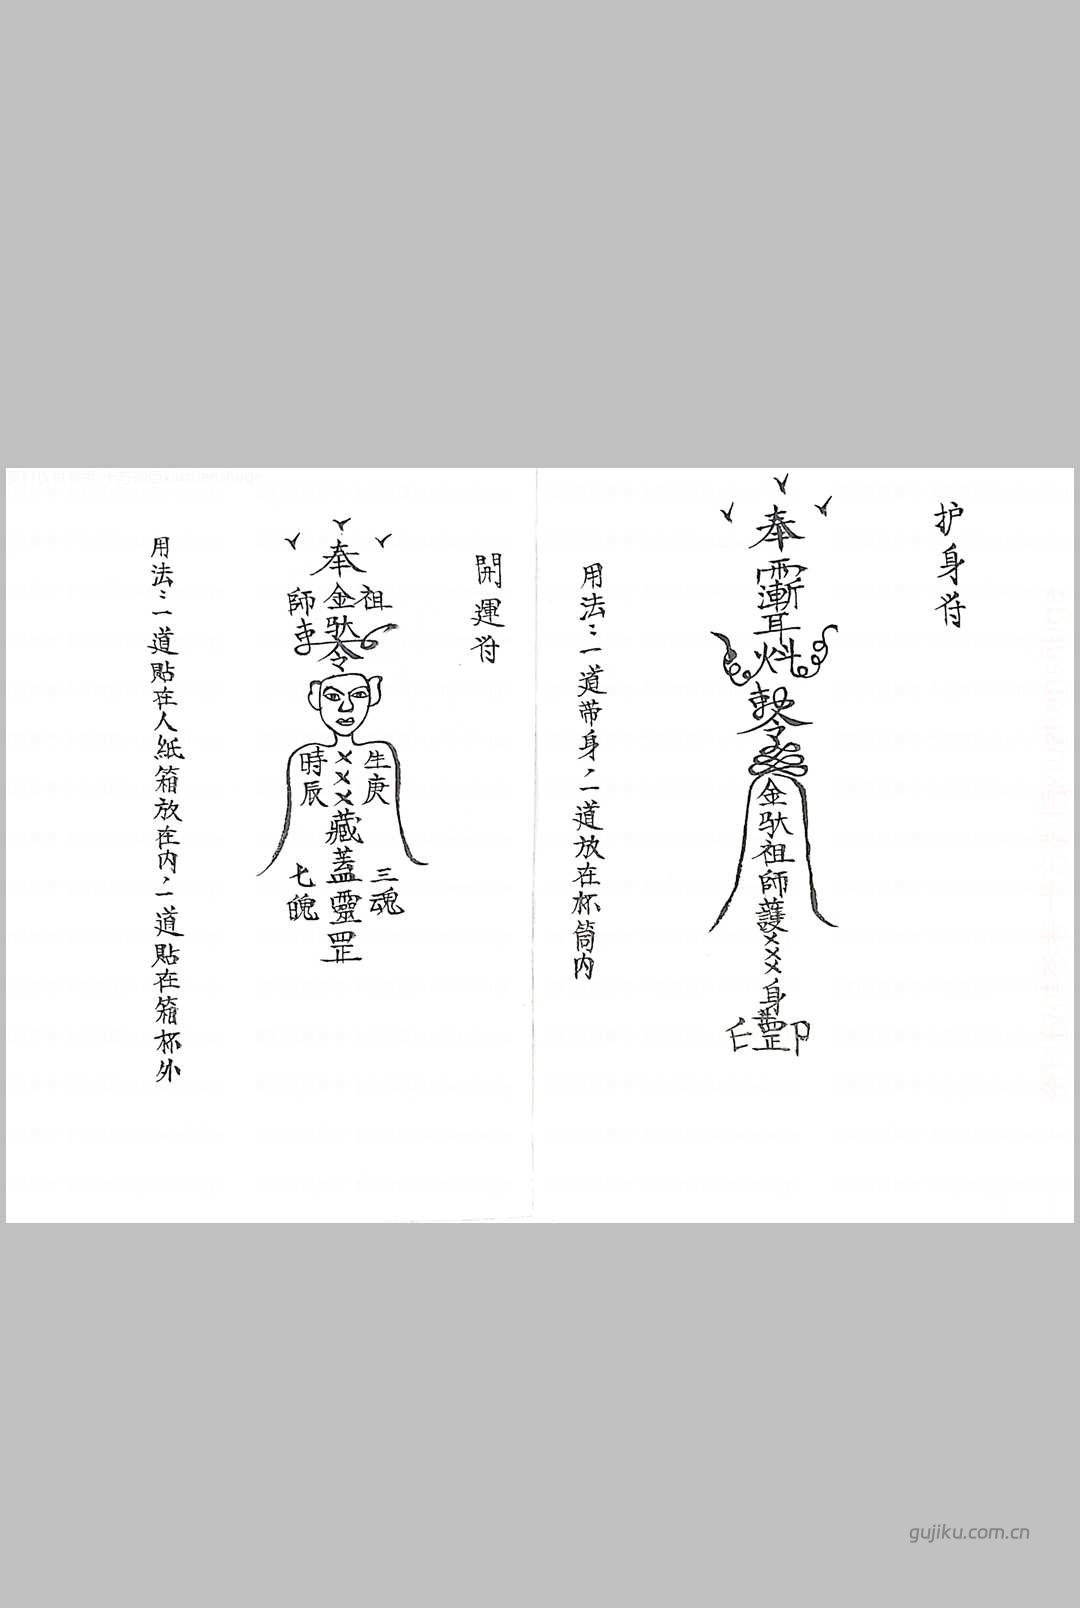 护身符
奉
令
金馱祖師護
×××
身罡
用法：一道带身、二道放在杯筒内
開運符
奉
祖
金馱
師
令
生庚
×××
時辰
藏蓋靈罡
三魂
七魄
用法：一道貼在人紙箱放在内、二道貼在箱杯外
gujiku.com.cn